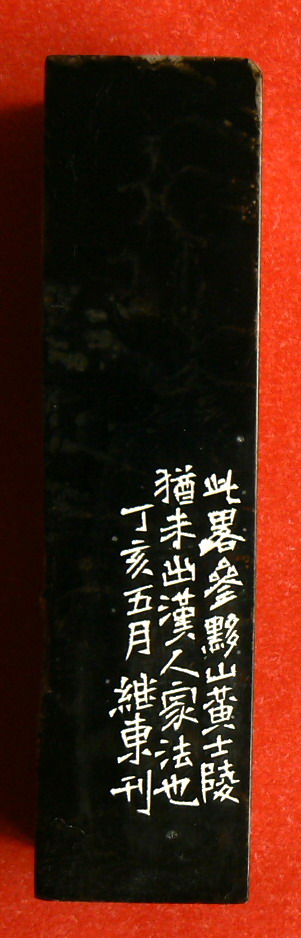 此畧參黟山黃士陵
猶未出漢人家法也
丁亥五月 維東刊